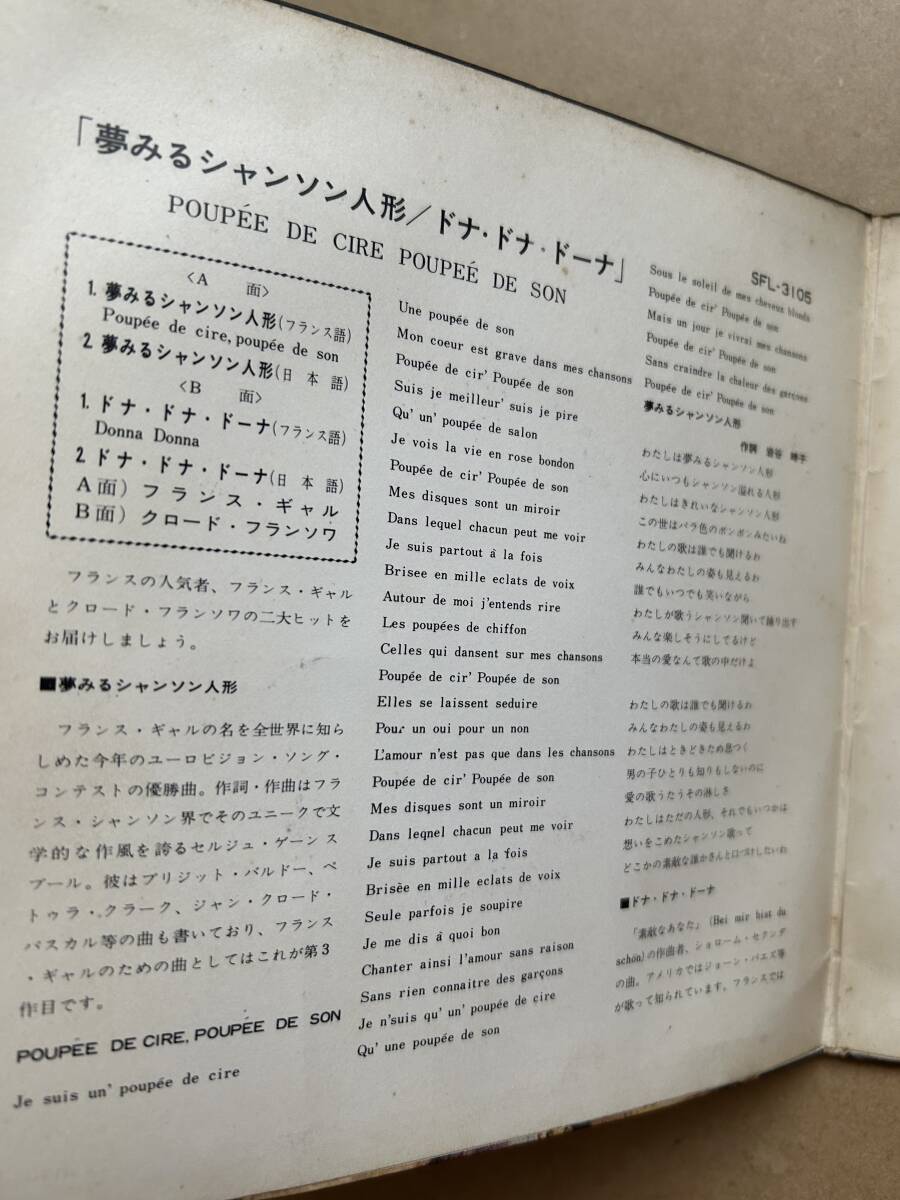 「夢みるシャンソン人形/ドナ・ドナ・ドーナ」
POUPÉE DE CIRE POUPEÉ DE SON
SFL-3105
〈A 面〉
1. 夢みるシャンソン人形(フランス語)
Poupée de cire, poupée de son
2. 夢みるシャンソン人形(日本語)
〈B 面〉
1. ドナ・ドナ・ドーナ(フランス語)
Donna Donna
2. ドナ・ドナ・ドーナ(日本語)
A面) フランス・ギャル
B面) クロード・フランソワ
フランスの人気者、フランス・ギャル
とクロード・フランソワの二大ヒットを
お届けしましょう。
■夢みるシャンソン人形
フランス・ギャルの名を全世界に知ら
しめた今年のユーロビジョン・ソング・
コンテストの優勝曲。作詞・作曲はフラ
ンス・シャンソン界でそのユニークで文
学的な作風を誇るセルジュ・ゲーンス
ブール。彼はブリジット・バルドー、ペ
トゥラ・クラーク、ジャン・クロード・
パスカル等の曲も書いており、フランス
・ギャルのための曲としてはこれが第3
作目です。
POUPÉE DE CIRE, POUPÉE DE SON
Je suis un' poupée de cire
Une poupée de son
Mon coeur est grave dans mes chansons
Poupée de cir' Poupée de son
Suis je meilleur' suis je pire
Qu' un' poupée de salon
Je vois la vie en rose bondon
Poupée de cir' Poupée de son
Mes disques sont un miroir
Dans lequel chacun peut me voir
Je suis partout â la fois
Brisee en mille eclats de voix
Autour de moi j'entends rire
Les poupées de chiffon
Celles qui dansent sur mes chansons
Poupée de cir' Poupée de son
Elles se laissent seduire
Pour un oui pour un non
L'amour n'est pas que dans les chansons
Poupée de cir' Poupée de son
Mes disques sont un miroir
Dans leqnel chacun peut me voir
Je suis partout a la fois
Brisèe en mille eclats de voix
Seule parfois je soupire
Je me dis á quoi bon
Chanter ainsi l'amour sans raison
Sans rien connaitre des garçons
Je n'suis qu' un' poupée de cire
Qu' une poupée de son
Sous le soleil de mes cheveux blonds
Poupée de cir' Poupée de son
Mais un jour je vivrai mes chansons
Poupée de cir' Poupée de son
Sans craindre la chaleur des garçons
Poupée de cir' Poupée de son
夢みるシャンソン人形
作詞 岩谷 時子
わたしは夢みるシャンソン人形
心にいつもシャンソン溢れる人形
わたしはきれいなシャンソン人形
この世はバラ色のボンボンみたいね
わたしの歌は誰でも聞けるわ
みんなわたしの姿も見えるわ
誰でもいつでも笑いながら
わたしが歌うシャンソン聞いて踊り出す
みんな楽しそうにしてるけど
本当の愛なんて歌の中だけよ
わたしの歌は誰でも聞けるわ
みんなわたしの姿も見えるわ
わたしはときどきため息つく
男の子ひとりも知りもしないのに
愛の歌うたうその淋しさ
わたしはただの人形、それでもいつかは
想いをこめたシャンソン歌って
どこかの素敵な誰かさんと口づけしたいわ
■ドナ・ドナ・ドーナ
「素敵なあなた」(Bei mir bist du
schön)の作曲者、ショローム・セクンダ
の曲。アメリカではジョーン・バエズ等
が歌って知られています。フランスでは